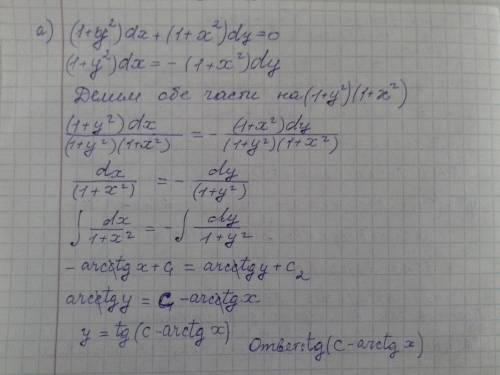 а) (1+y²)dx+(1+x²)dy=0
(1+y²)dx = - (1+x²)dy
Делим обе части на (1+y²)(1+x²)
(1+y²)dx / (1+y²)(1+x²) = - (1+x²)dy / (1+y²)(1+x²)
dx / (1+x²) = - dy / (1+y²)
∫ dx / 1+x² = -∫ dy / 1+y²
-arctg x + C₁ = arctg y + C₂
arctg y = C - arctg x
y = tg(C - arctg x)
Ответ: tg(C - arctg x)